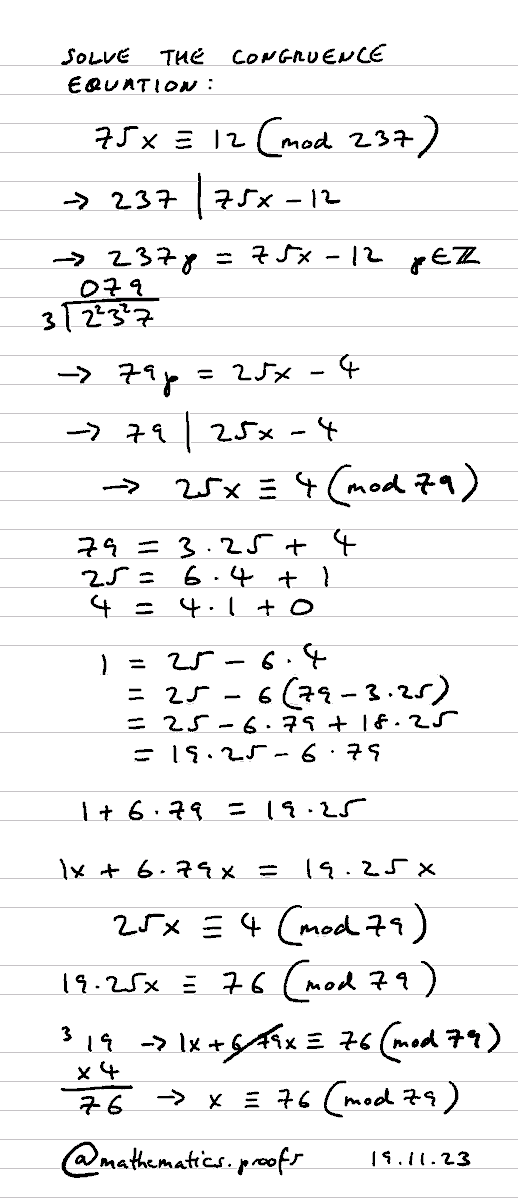 SOLVE THE CONGRUENCE
EQUATION:
75x ≡ 12 (mod 237)
→ 237 | 75x - 12
→ 237p = 75x - 12 p∈ℤ
079
3 2²3²7
→ 79p = 25x - 4
→ 79 | 25x - 4
→ 25x ≡ 4 (mod 79)
79 = 3.25 + 4
25 = 6.4 + 1
4 = 4.1 + 0
1 = 25 - 6.4
= 25 - 6(79 - 3.25)
= 25 - 6.79 + 18.25
= 19.25 - 6.79
1 + 6.79 = 19.25
1x + 6.79x = 19.25x
25x ≡ 4 (mod 79)
19.25x ≡ 76 (mod 79)
³19 → 1x + 6.79x ≡ 76 (mod 79)
x4
76 → x ≡ 76 (mod 79)
@mathematics.proofs 19.11.23